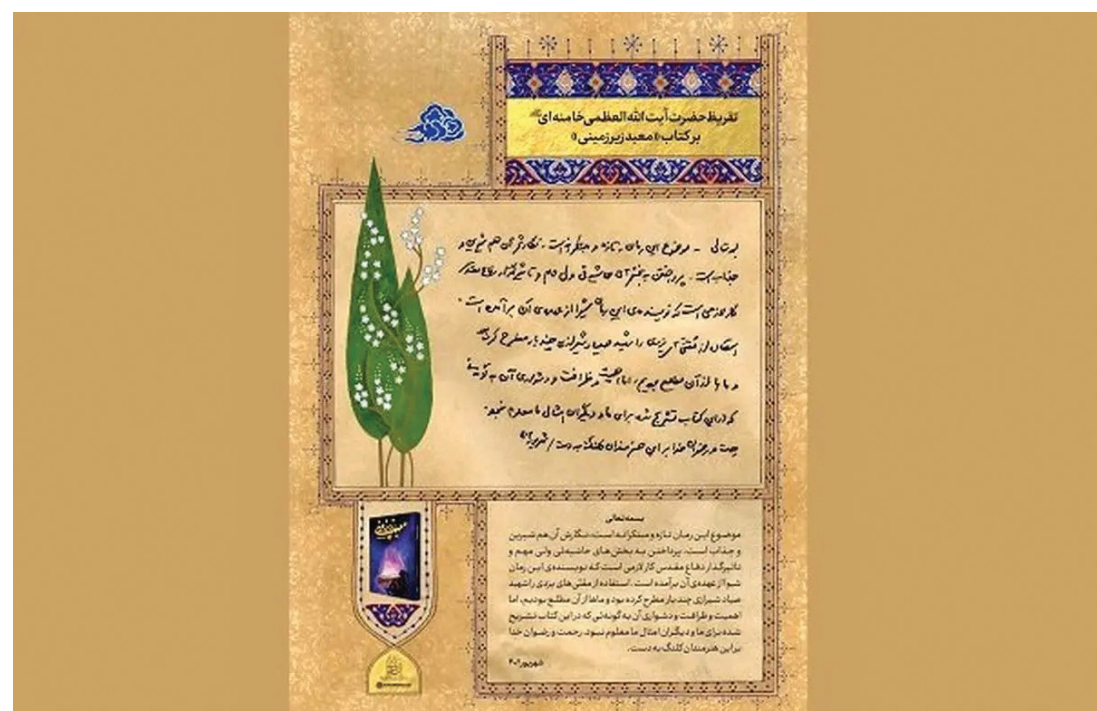 تقریظ حضرت آیت الله العظمی خامنه‌ای
بر کتاب «معبد زیرزمینی»
بسمه‌تعالی - موضوع این رمان تازه و مبتکرانه است. نگارش آن هم شیرین و
جذاب است. پرداختن به بخش‌های حاشیه‌ئی ولی مهم و تاثیرگذار دفاع مقدس
کار لازمی است که نویسنده‌ی این رمان شیوا از عهده‌ی آن برآمده است.
استفاده از مقنّی‌های یزدی را شهید صیاد شیرازی چند بار مطرح کرده بود
و ماها از آن مطلع بودیم، اما اهمیت و ظرافت و دشواری آن به گونه‌ئی
که در این کتاب تشریح شده برای ما و دیگران امثال ما معلوم نبود.
رحمت و رضوان خدا بر این هنرمندان کلنگ به دست
بسمه‌تعالی
موضوع این رمان تازه و مبتکرانه است، نگارش آن هم شیرین
و جذاب است. پرداختن به بخش‌های حاشیه‌ئی ولی مهم و
تاثیرگذار دفاع مقدس کار لازمی است که نویسنده‌ی این رمان
شیوا از عهده‌ی آن برآمده است. استفاده از مقنّی‌های یزدی را شهید
صیاد شیرازی چند بار مطرح کرده بود و ماها از آن مطلع بودیم، اما
اهمیت و ظرافت و دشواری آن به گونه‌ئی که در این کتاب تشریح
شده برای ما و دیگران امثال ما معلوم نبود. رحمت و رضوان خدا
بر این هنرمندان کلنگ به دست.
معبد زیرزمینی